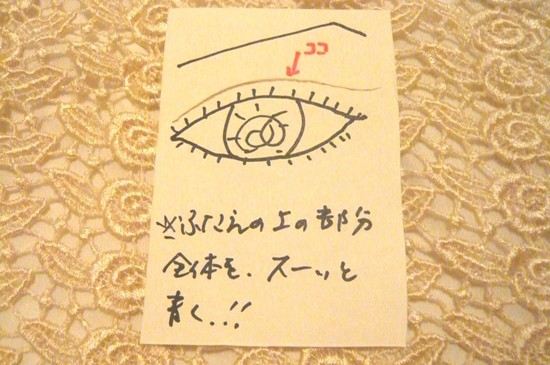 ココ
※ふたえの上の部分
全体を、スーッと
青く..!!